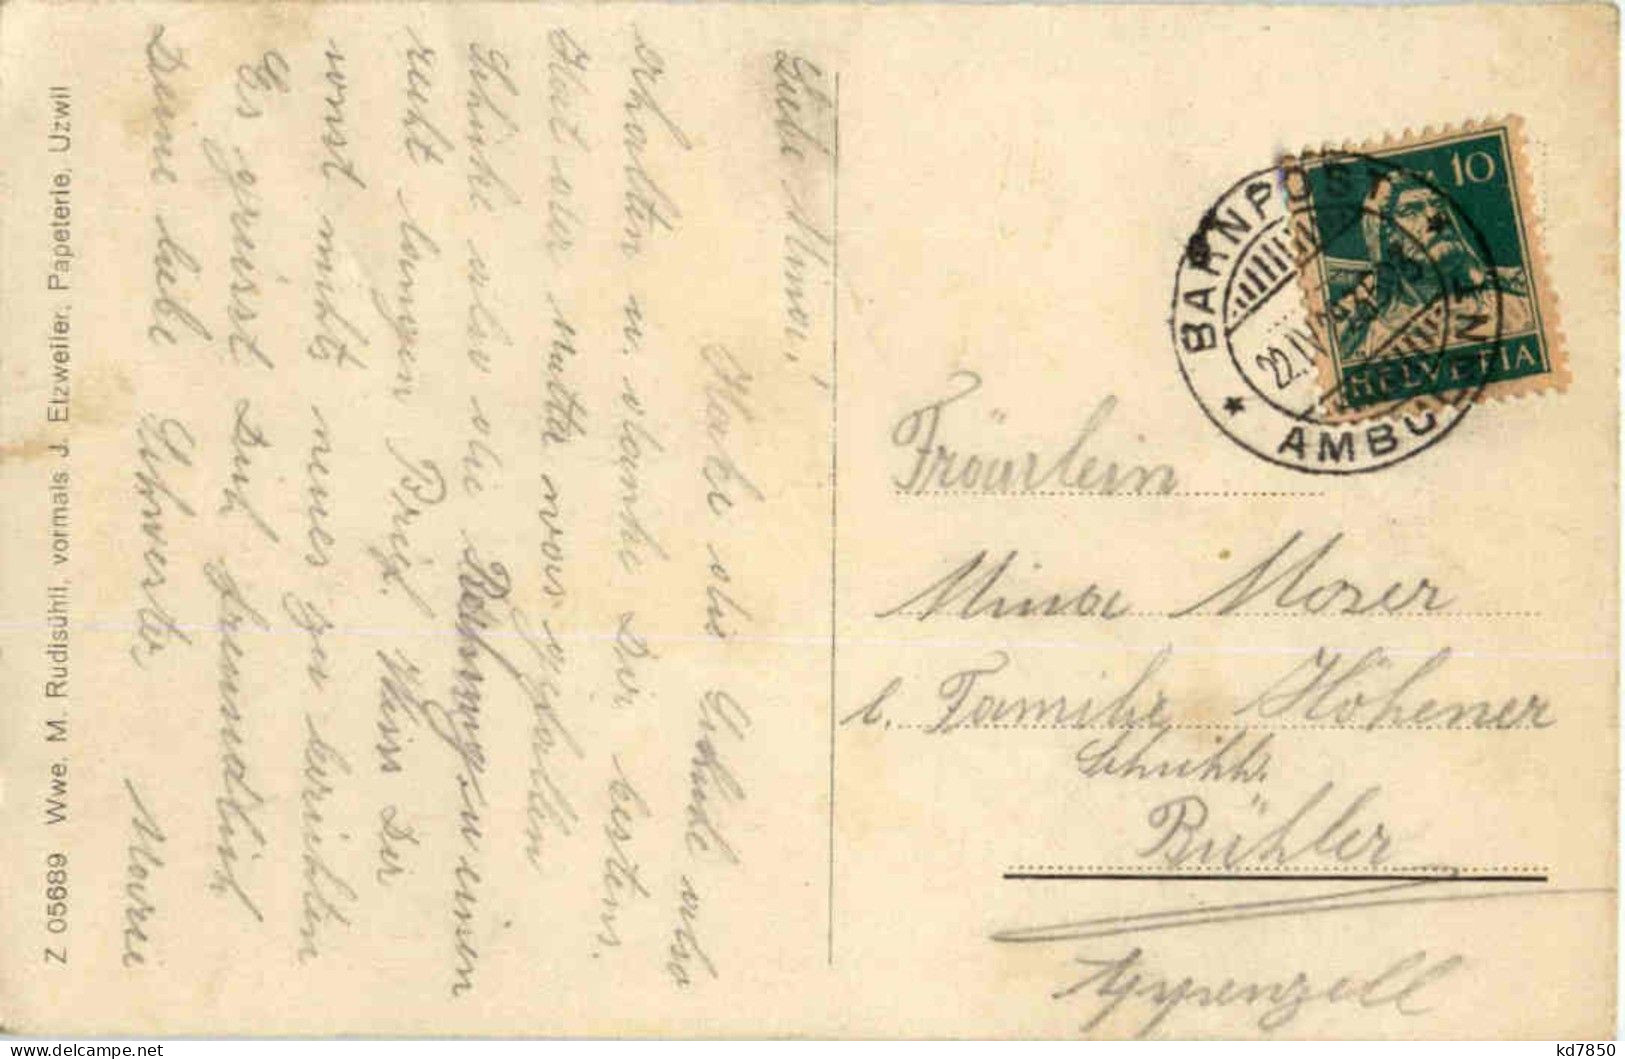 Z 05689 Wwe. M. Rudisühli, vormals J. Etzweiler, Papeterie, Uzwil
Liebe Mina!
Habe die also
erhalten u. danke Dir bestens.
Hat der mutter was gefallen
Schicke also die Rechnung zu einen
recht langen Brief. Weiss Dir
sonst nichts neues zu berichten
Es grüsst Dich freundlich
Deine liebe Schwester
Marie
10
HELVETIA
BAHNPOST
AMBULANT
22.IV
Fräulein
Mina Moser
b. Familie Höhener
Bühler
Appenzell
kd7850